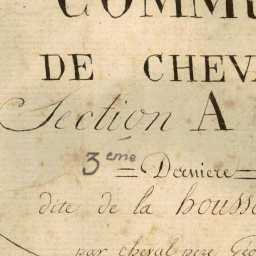 COMMU
DE CHEVA
Section A
3eme = Derniere =
dite de la housse
par cheval pere Géo